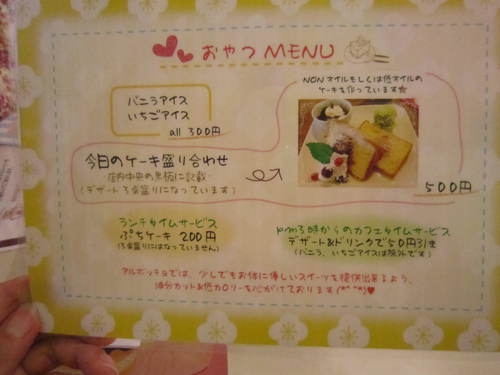 おやつ MENU
バニラアイス
いちごアイス
all 300円
NONオイルもしくは低オイルの
ケーキを作っています☆
今日のケーキ盛り合わせ
店内中央の黒板に記載
(デザート3点盛りになっています)
500円
ランチタイムサービス
ぷちケーキ 200円
(3点盛りにはなっていません)
pm3時からのカフェタイムサービス
デザート&ドリンクで50円引き
(バニラ、いちごアイスは除外です)
アルポッチョでは、少しでもお体に優しいスイーツを提供出来るよう、
油分カット&低カロリーを心がけております(*^^*)♥